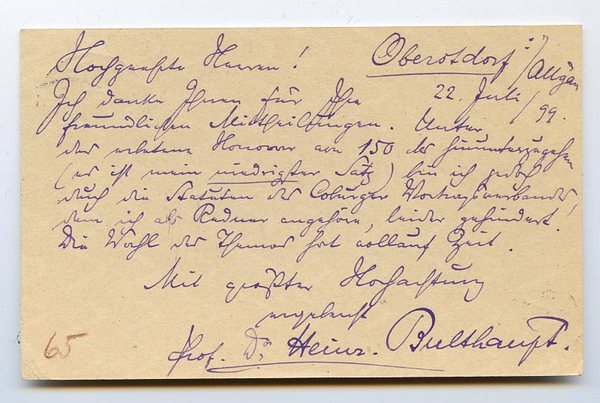 Hochgeehrte Herren! Oberstdorf i/Allgäu
22. Juli/99.
Ich danke Ihnen für Ihre
freundlichen Mittheilungen. Unter
das erbetene Honorar von 150 M hinunterzugehen
(es ist mein niedrigster Satz) bin ich jedoch
durch die Statuten des Coburger Vortragsverbandes,
dem ich als Redner angehöre, leider gehindert.
Die Wahl des Themas hat vollauf Zeit.
Mit größter Hochachtung
ergebenst
Prof. Dr. Heinr. Bulthaupt.
65